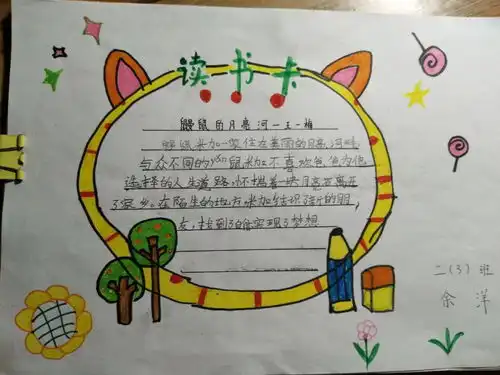 读书卡
鼹鼠的月亮河一王一梅
鼹鼠米加一家住在美丽的月亮河畔
与众不同的小鼠米加不喜欢爸爸为他
选择的人生道路,怀揣着一块月亮石离开
了家乡。在陌生的地方,米加结识了新的朋
友,找到了自信实现了梦想
二(3)班
余洋